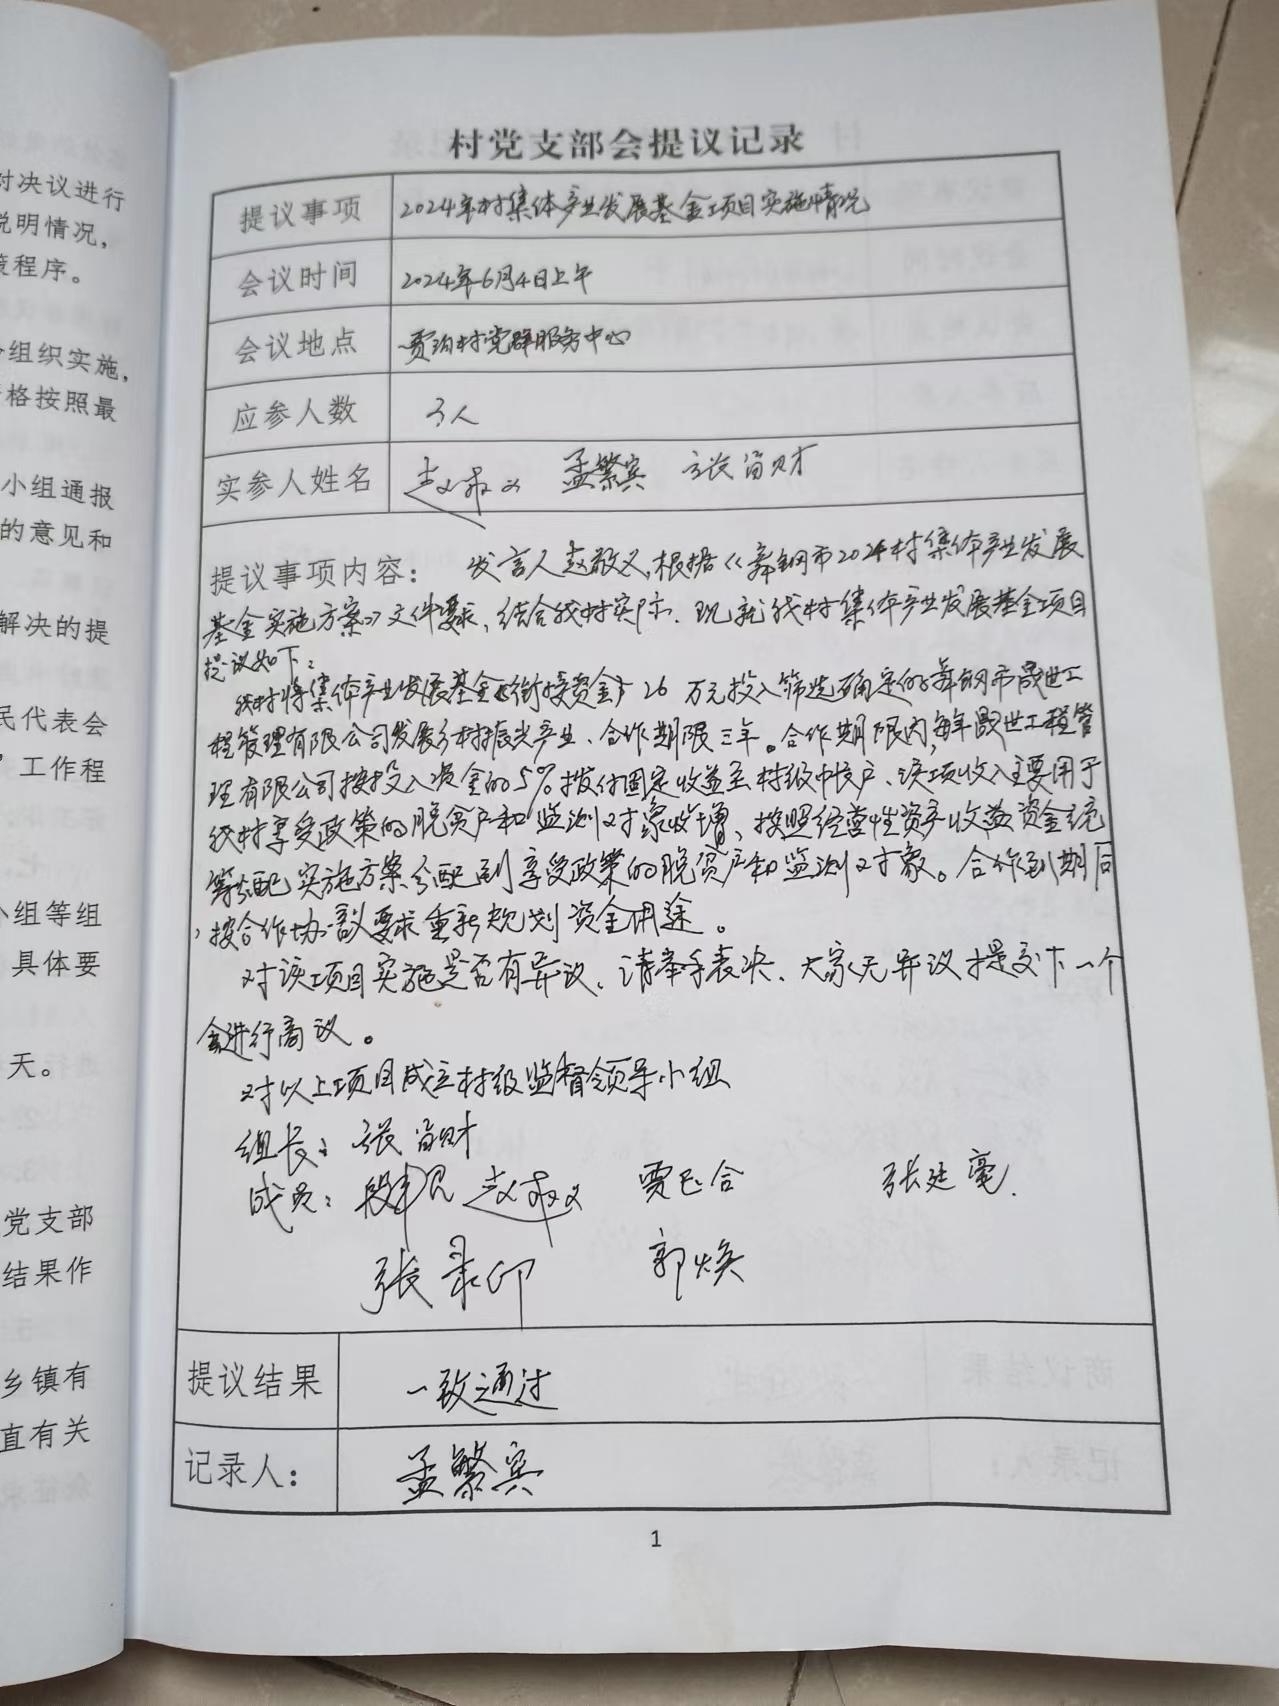 对决议进行
说明情况,
策程序。
组织实施,
格按照最
小组通报
的意见和
解决的提
民代表会
工作程
小组等组
具体要
天。
党支部
结果作
乡镇有
直有关
村党支部会提议记录
提议事项 2024年村集体产业发展基金项目实施情况
会议时间 2024年6月4日上午
会议地点 贾沟村党群服务中心
应参人数 3人
实参人姓名 赵敬义 孟繁宾 张富财
提议事项内容: 发言人赵敬义,根据《舞钢市2024村集体产业发展
基金实施方案》文件要求、结合我村实际、现就我村集体产业发展基金项目
提议如下:
我村将集体产业发展基金(衔接资金)26万元投入筛选确定的舞钢市晟世工
程管理有限公司发展乡村振兴产业、合作期限三年。合作期限内,每年晟世工程管
理有限公司按投入资金的5%拨付固定收益至村级中转户、该项收入主要用于
我村享受政策的脱贫户和监测对象收增、按照经营性资产收益资金统
筹分配实施方案分配到享受政策的脱贫户和监测对象。合作到期后
,按合作协议要求重新规划资金用途。
对该项目实施是否有异议、请举手表决、大家无异议提交下一个
会进行商议。
对以上项目成立村级监督领导小组
组长: 张富财
成员: 赵敬义 贾 合 张延毫.
张录印 郭焕
提议结果 一致通过
记录人: 孟繁宾
1